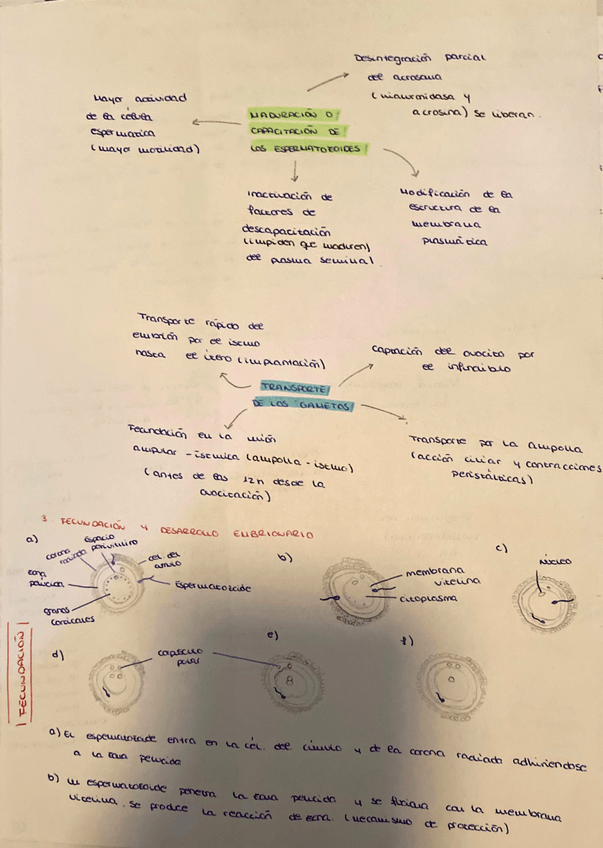 Desintegración parcial
del acrosoma
(hialuronidasa y
acrosina) se liberan.
Mayor actividad
de la célula
espermática
(mayor motilidad)
MADURACIÓN O
CAPACITACIÓN DE
LOS ESPERMATOZOIDES
Inactivación de
factores de
descapacitación
(impiden que maduren)
del plasma seminal.
Modificación de la
estructura de la
membrana
plasmática
Transporte rápido del
embrión por el istmo
hasta el útero (implantación)
Captación del ovocito por
el infundíbulo
TRANSPORTE
DE LOS GAMETOS
Fecundación en la unión
ampular-istmica (ampolla-istmo)
(antes de las 12h desde la
ovocitación)
Transporte por la ampolla
(acción ciliar y contracciones
peristálticas)
3. FECUNDACIÓN Y DESARROLLO EMBRIONARIO
a)
espacio
perivitelino
corona
radiada
cél. del
cúmulo
zona
pelúcida
Espermatozoide
granos
corticales
b)
membrana
vitelina
citoplasma
c)
Núcleo
FECUNDACIÓN
d)
corpúsculo
polar
e)
f)
a) El espermatozoide entra en la cél. del cúmulo y de la corona radiada adhiriéndose
a la zona pelúcida
b) Un espermatozoide penetra la zona pelúcida y se fusiona con la membrana
vitelina. Se produce la reacción de zona. (mecanismo de protección)